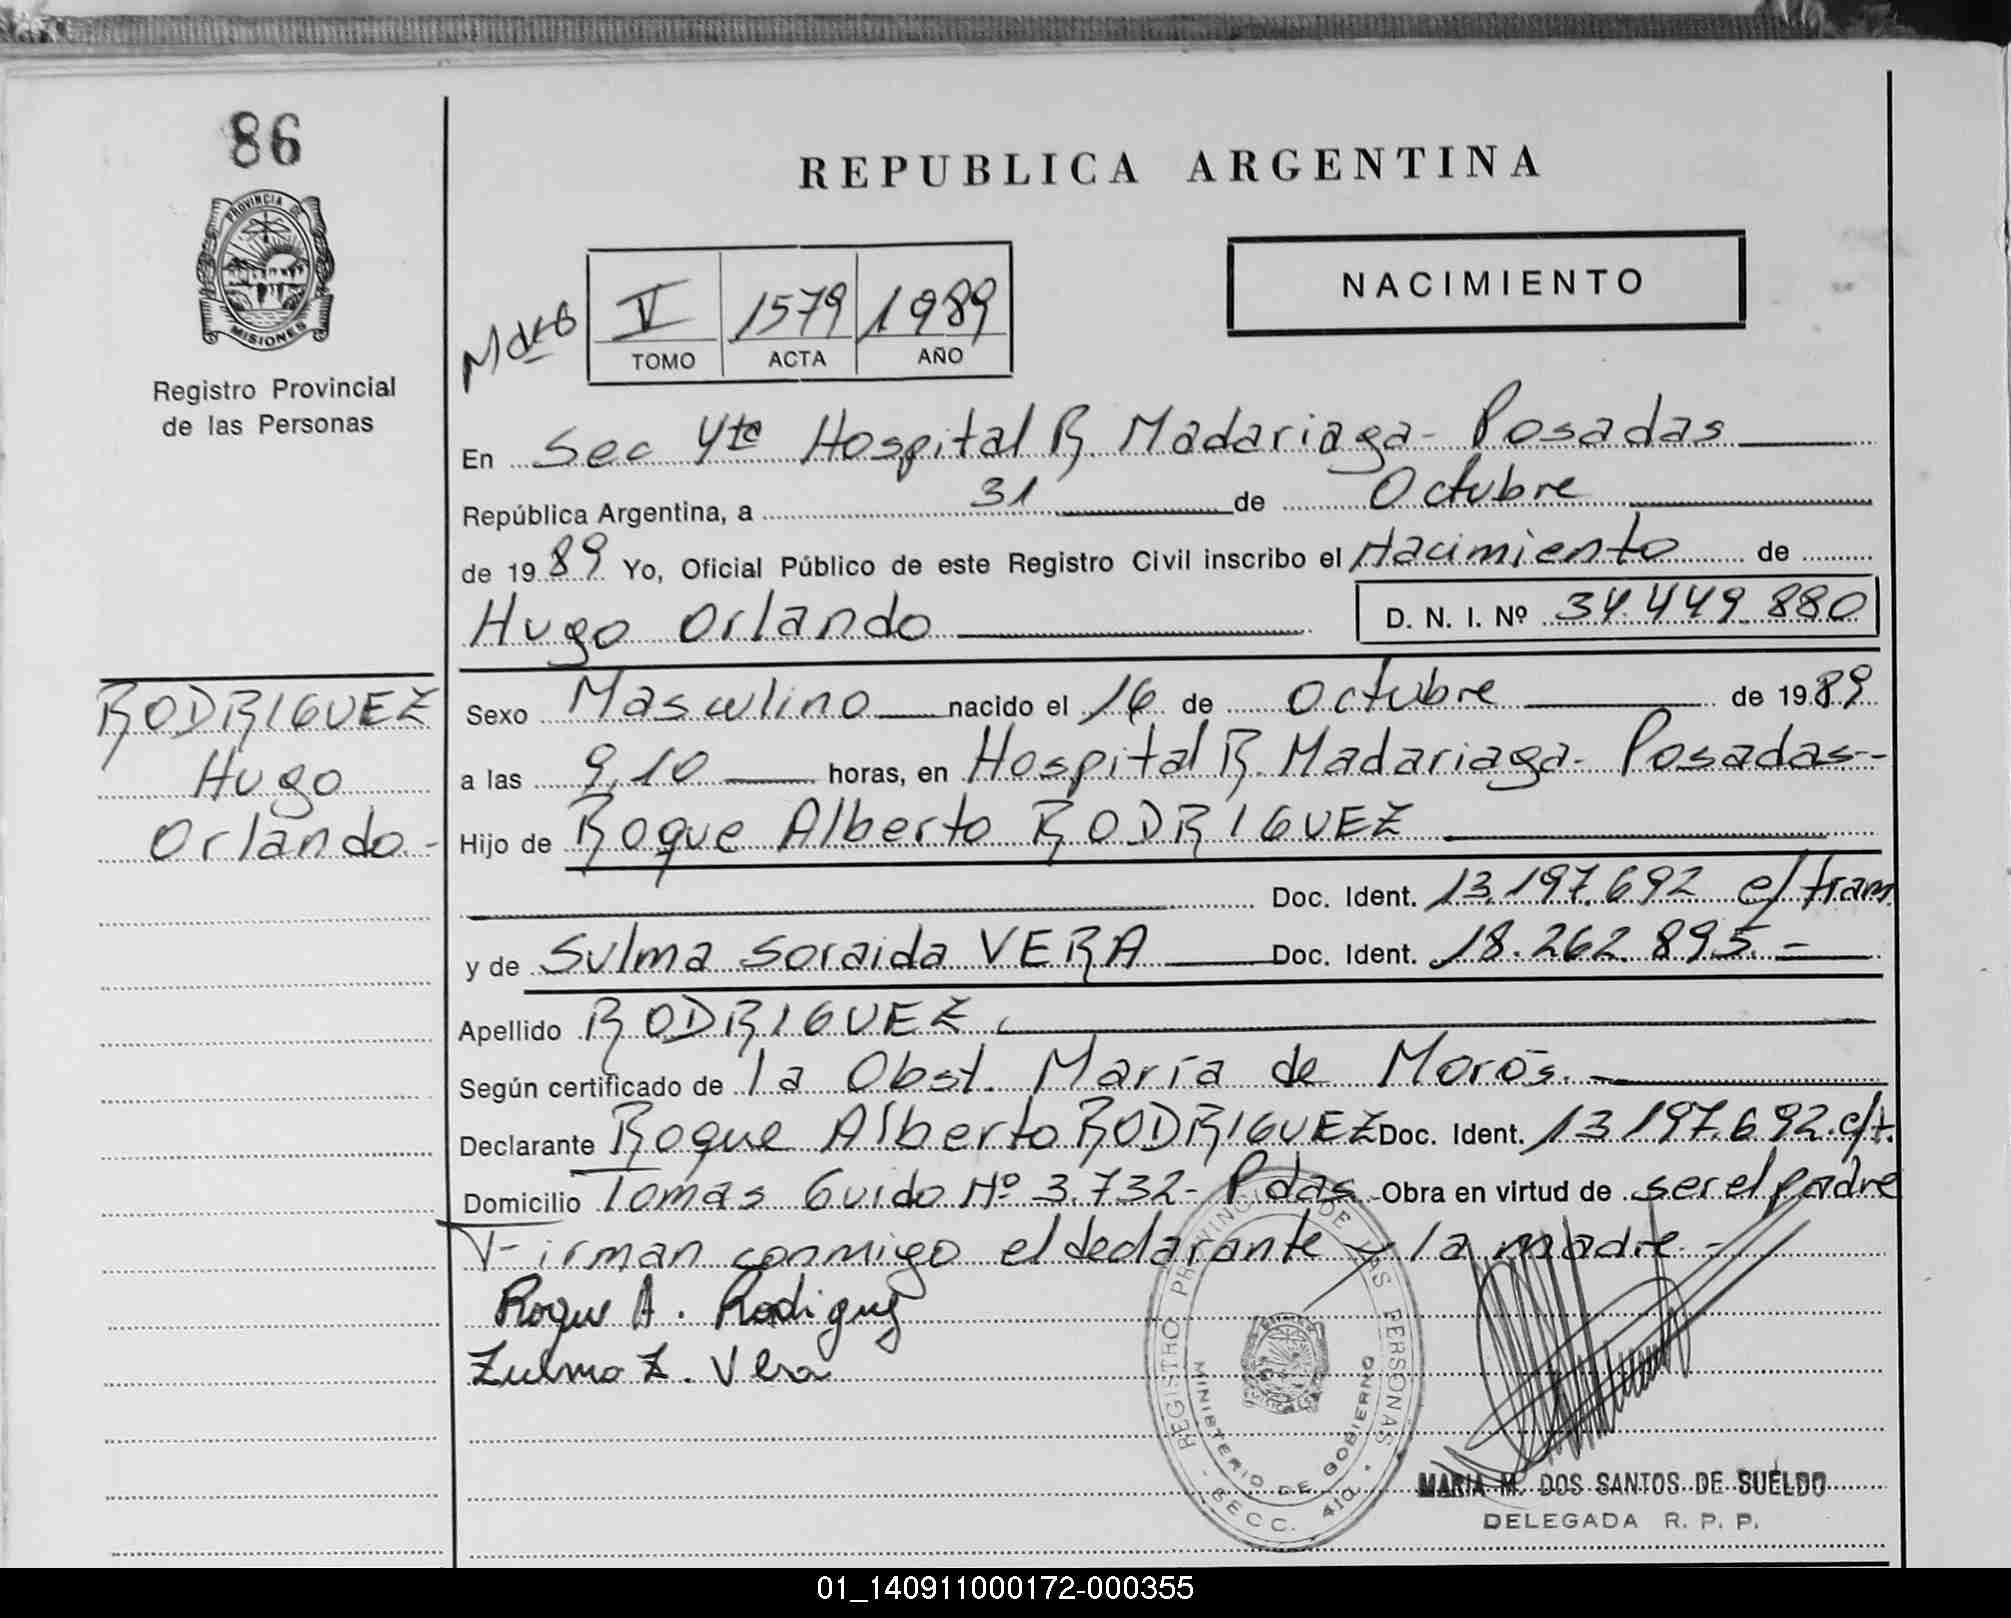 86
PROVINCIA DE
MISIONES
Registro Provincial
de las Personas
REPUBLICA ARGENTINA
NACIMIENTO
V 1579 1989
TOMO ACTA AÑO
En Sec 4ta Hospital R. Madariaga - Posadas
República Argentina, a 31 de Octubre
de 1989 Yo, Oficial Público de este Registro Civil inscribo el Nacimiento de
Hugo Orlando D. N. I. Nº 34.449.880
RODRIGUEZ
Hugo
Orlando -
Sexo Masculino nacido el 16 de Octubre de 1989
a las 9,10 horas, en Hospital R. Madariaga - Posadas--
Hijo de Roque Alberto RODRIGUEZ
Doc. Ident. 13.197.692 e/tram.
y de Sulma Soraida VERA Doc. Ident. 18.262.895.-
Apellido RODRIGUEZ
Según certificado de la Obst. María de Morós.-
Declarante Roque Alberto RODRIGUEZ Doc. Ident. 13.197.692.e/t.
Domicilio Tomás Guido Nº 3.732- Pdas - Obra en virtud de ser el padre
Firman conmigo el declarante y la madre -
Roque A. Rodiguez
Zulma Z. Vera
REGISTRO PROVINCIAL DE LAS PERSONAS
MINISTERIO DE GOBIERNO
SECC. 4ta
MARIA M. DOS SANTOS DE SUELDO
DELEGADA R. P. P.
01_140911000172-000355